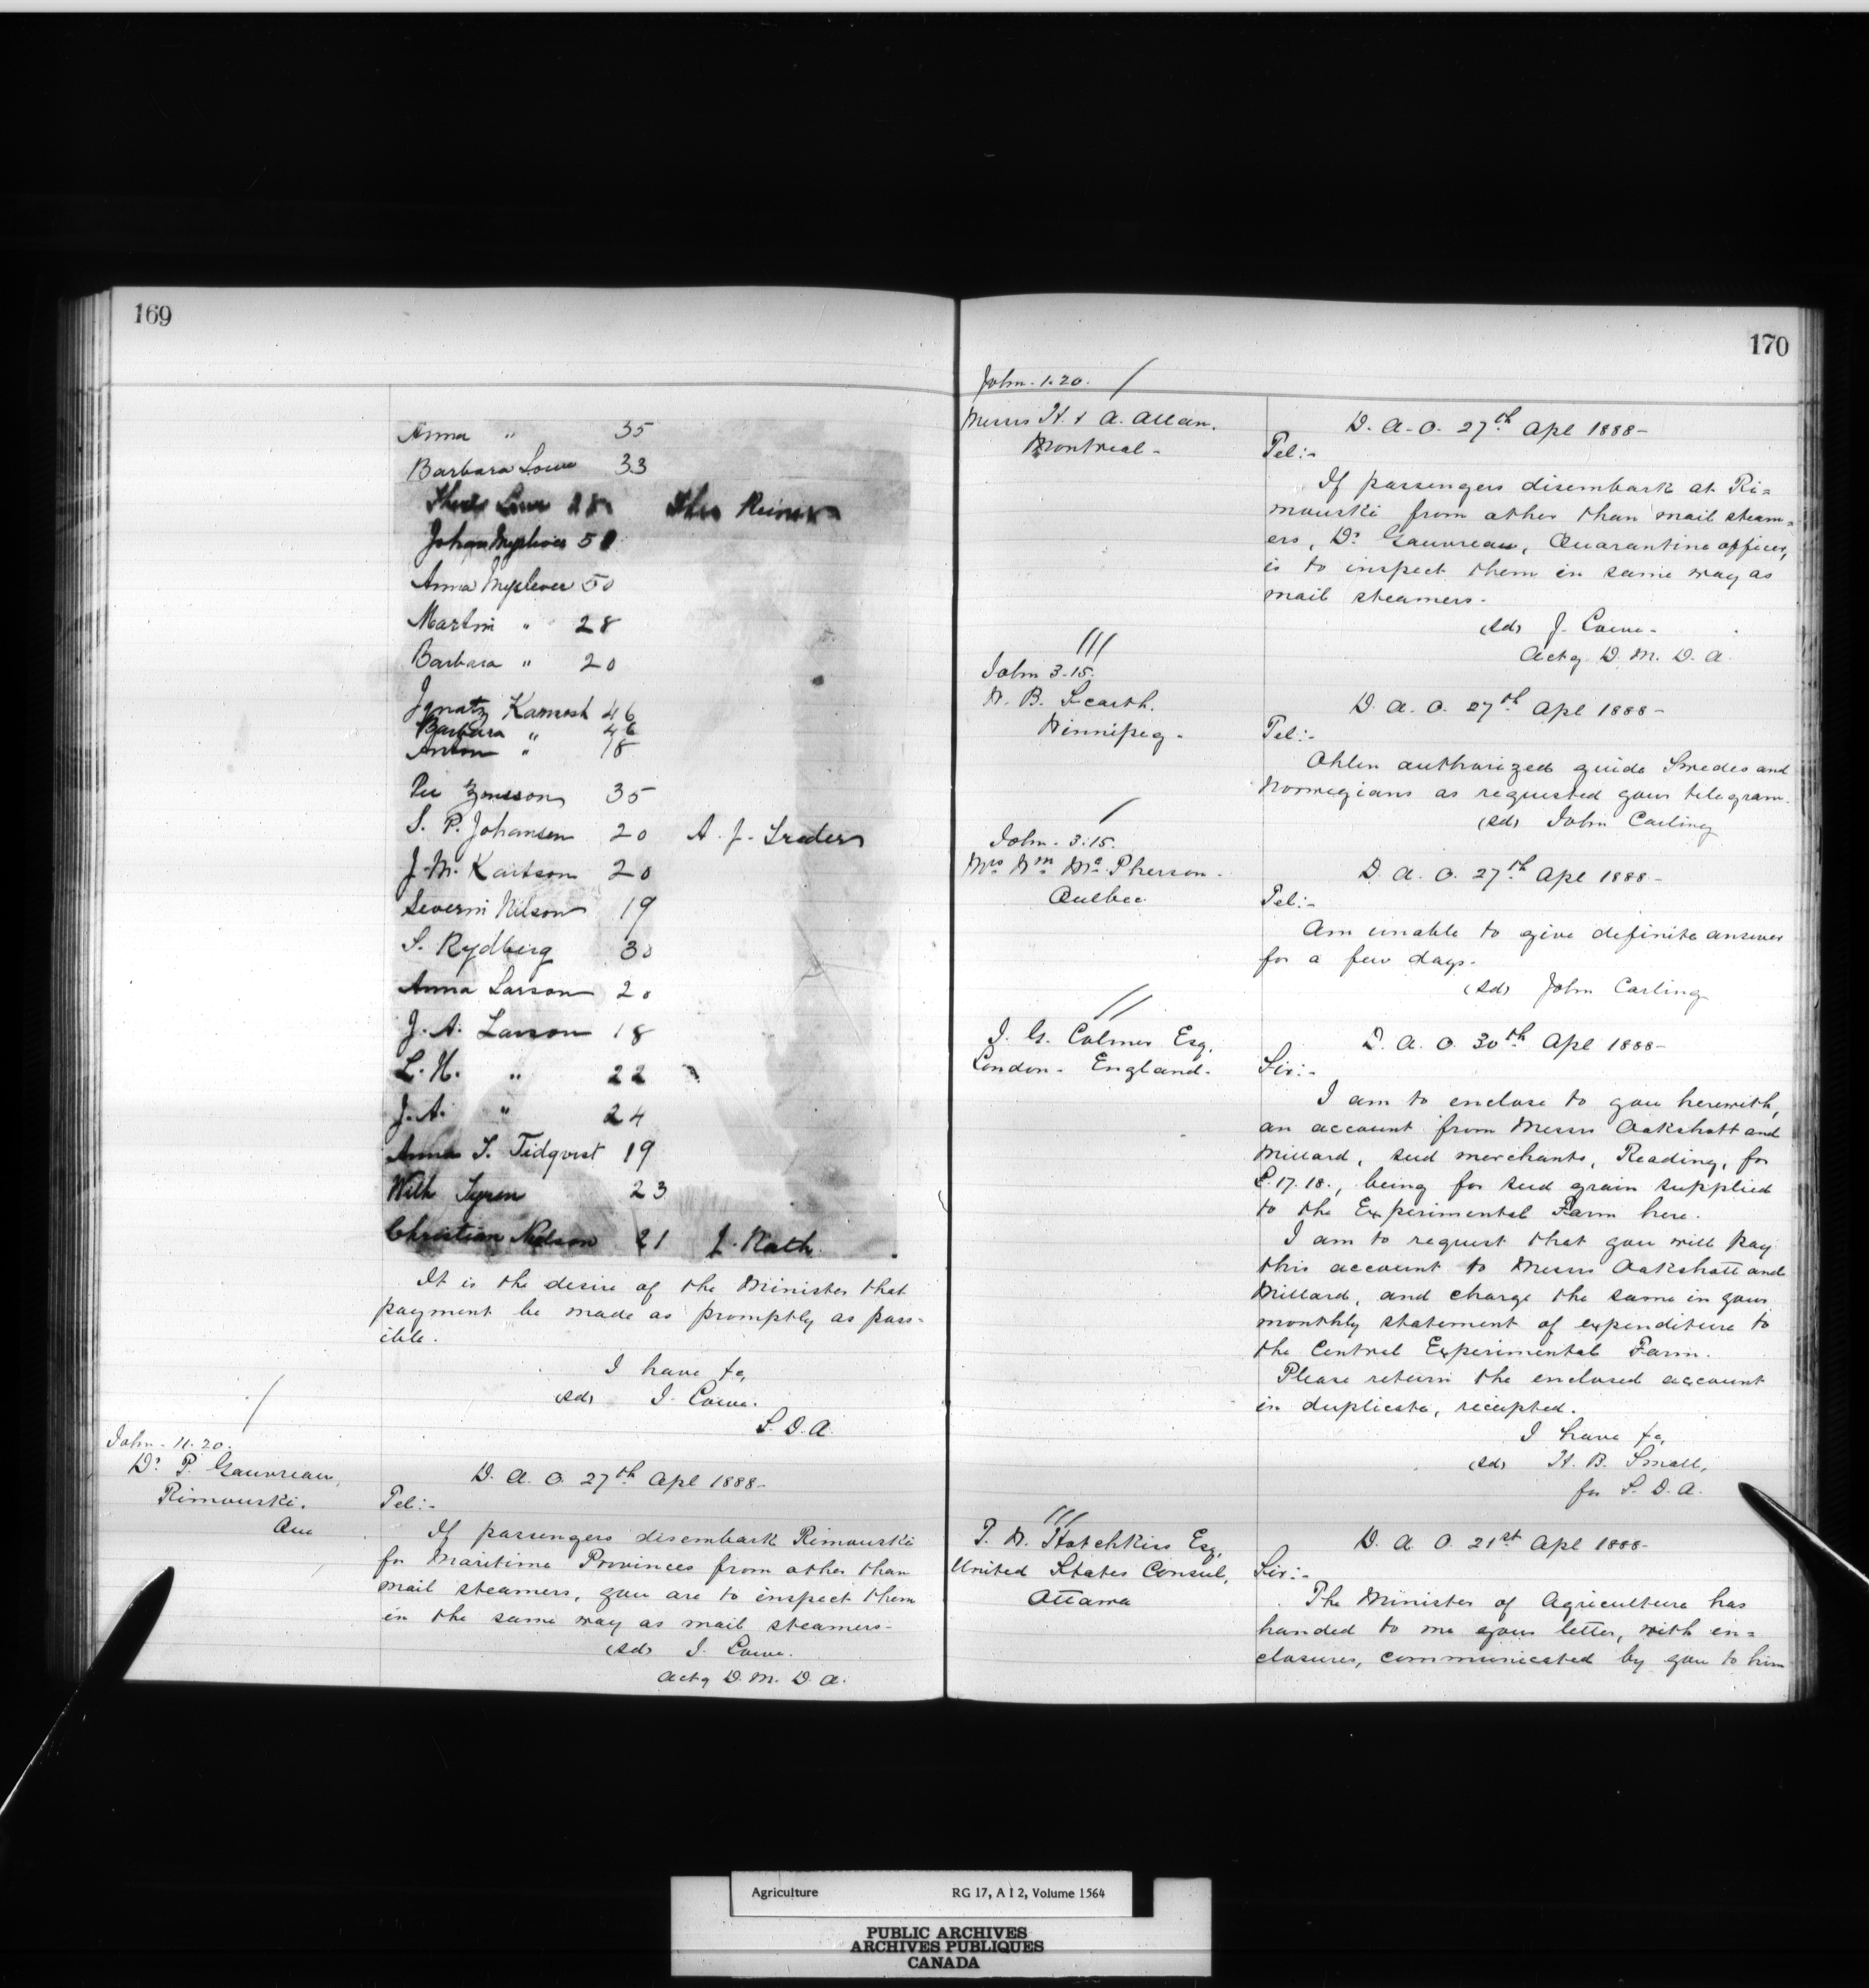 169
Anna " 35
Barbara Lowe 33
28
Johan 50
Anna 50
Martin " 28
Barbara " 20
Ignatz Kamesh 46
Barbara " 46
Anton " 18
Per 35
S. P. Johansen 20 A. J.
J. M. Karlson 20
Severin Nilson 19
S. Rydberg 30
Anna Larson 20
J. A. Larson 18
L. N. " 22
J. A. " 24
Anna S. Tidqvist 19
Wilh 23
Christian Nielson 21 J. Nath
It is the desire of the Minister that
payment be made as promptly as poss-
ible.
I have &c,
(sd) J. Lowe.
S. D. A.
John - 11.20.
Dr P. Gauvreau,
Rimouski.
Que
D. A. O. 27th Apl 1888-
Tel:-
If passengers disembark Rimouski
for Maritime Provinces from other than
mail steamers, you are to inspect them
in the same way as mail steamers-
(sd) J. Lowe.
Actg D. M. D. A.
170
John - 1.20.
Messrs H. & A. Allan.
Montreal -
D. A. O. 27th Apl 1888-
Tel:-
If passengers disembark at Ri=
mouski from other than mail steam=
ers, Dr Gauvreau, Quarantine officer,
is to inspect them in same way as
mail steamers.
(sd) J. Lowe-
Actg D. M. D. A.
John 3.15.
W. B. Scarth.
Winnipeg -
D. A. O. 27th Apl 1888-
Tel:-
Ohlen authorized guide Swedes and
Norwegians as requested your telegram.
(sd) John Carling
John - 3.15.
Mrs Wm McPherson-
Quebec
D. A. O. 27th Apl 1888-
Tel:-
Am unable to give definite answer
for a few days-
(sd) John Carling
J. G. Colmer Esq.
London - England-
D. A. O. 30th Apl 1888-
Sir:-
I am to enclose to you herewith,
an account from Messrs Oakshott and
Millard, seed merchants, Reading, for
£.17.18., being for seed grain supplied
to the Experimental Farm here.
I am to request that you will pay
this account to Messrs Oakshott and
Millard, and charge the same in your
monthly statement of expenditure to
the Central Experimental Farm.
Please return the enclosed account
in duplicate, receipted.
I have &c,
(sd) H. B. Small,
for S. D. A.
T. W. Hotchkiss Esq,
United States Consul,
Ottawa
D. A. O. 21st Apl 1888-
Sir:-
The Minister of Agriculture has
handed to me your letter, with en=
closures, communicated by you to him
Agriculture RG 17, A I 2, Volume 1564
PUBLIC ARCHIVES
ARCHIVES PUBLIQUES
CANADA